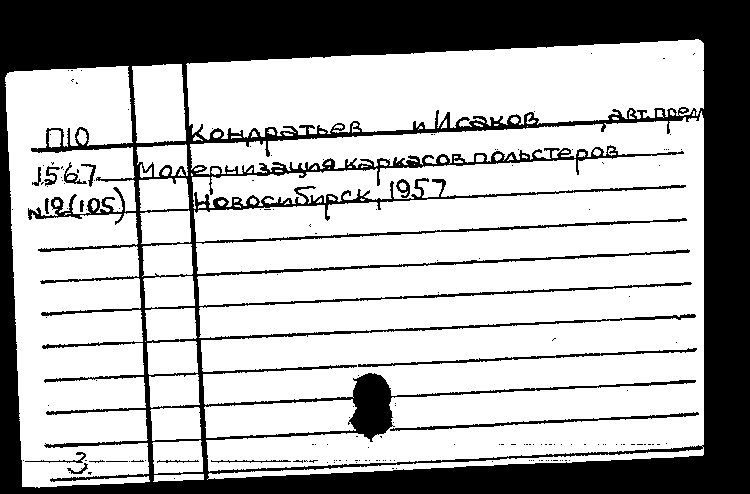 П10 Кондратьев и Исаков, авт. предл
1567 Модернизация каркасов польстеров
№19(105) Новосибирск, 1957
3